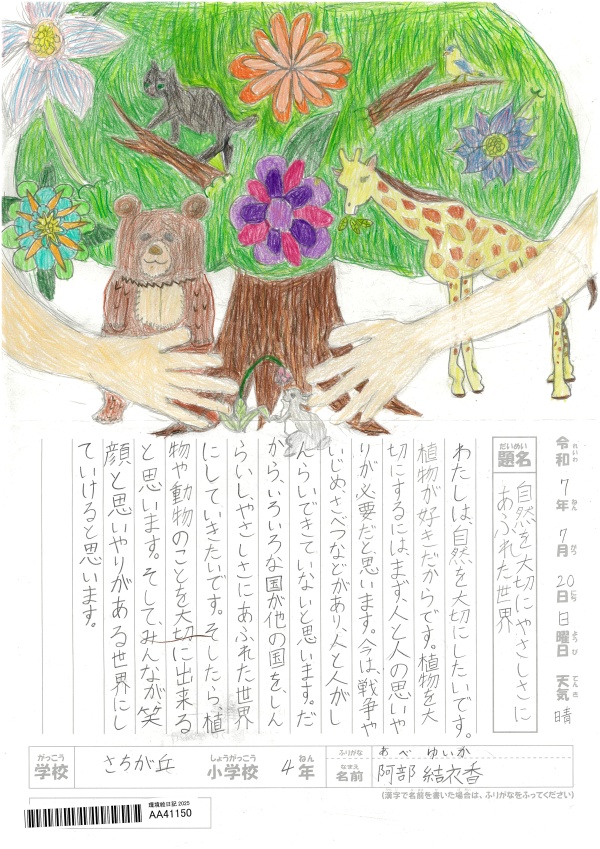 令和 7年 7月 20日 日曜日 天気 晴
れいわ ねん がつ にち ようび てんき
だいめい
題名
自然を大切にやさしさに
あふれた世界
わたしは、自然を大切にしたいです。
植物が好きだからです。植物を大
切にするには、まず、人と人の思いや
りが必要だと思います。今は、戦争や
いじめ、さべつなどがあり、人と人がし
んらいできていないと思います。だ
から、いろいろな国が他の国を、しん
らいし、やさしさにあふれた世界
にしていきたいです。そしたら、植
物や動物のことを大切に出来る
と思います。そして、みんなが、笑
顔と思いやりがある世界にし
ていけると思います。
がっこう しょうがっこう ねん
学校 さちが丘 小学校 4年
ふりがな あべ ゆいか
なまえ
名前 阿部 結衣香
(漢字で名前を書いた場合は、ふりがなをふってください)
環境絵日記2025
AA41150